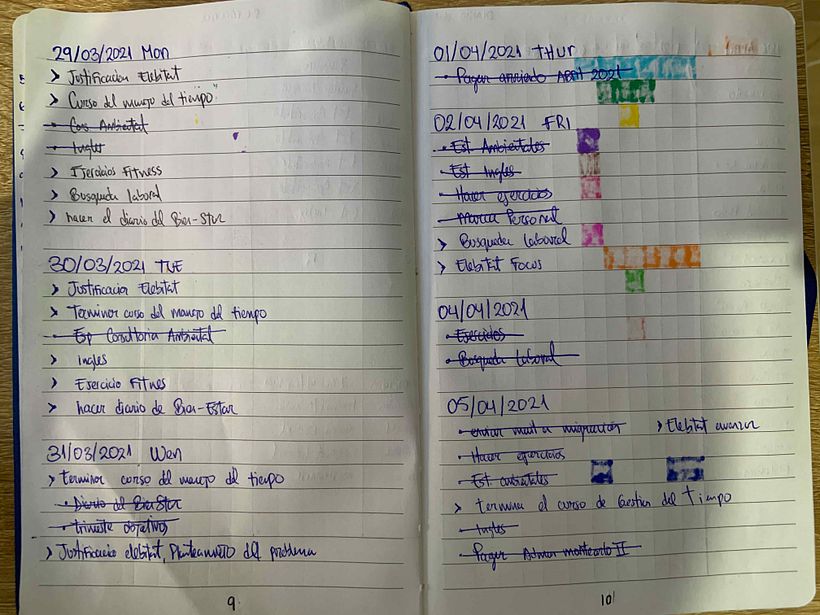 29/03/2021 Mon
> Justificacion Elebitat
> Curso del manejo del tiempo
• Cons Ambiental
• Ingles
> Ejercicios Fitness
> Busqueda laboral
> hacer el diario del Bien-Star
30/03/2021 TUE
> Justificacion Elebitat
> Terminar curso del manejo del tiempo
• Esp Consultoria Ambiental
> ingles
> Ejercicio Fitnes
> hacer diario de Bien-Estar
31/03/2021 Wen
> terminar curso del manejo del tiempo
• Diario del BienStar
• trimestre objetivos
> Justificacio elebitat, Planteamineto del problema
9
01/04/2021 THUR
• Pagar arriendo Abril 2021
02/04/2021 FRI
• Est Ambientales
• Est Ingles
• Hacer ejercicios
• Marca Personal
> Busqueda laboral
> Elebitat Focus
04/04/2021
• Ejercicios
• Busqueda laboral
05/04/2021
• enviar mail a migración > Elebitat avanzar
• Hacer ejercicios
• Est ambientales
> Termina el curso de Gestion del Tiempo
• Ingles
• Pagar Admon II
10